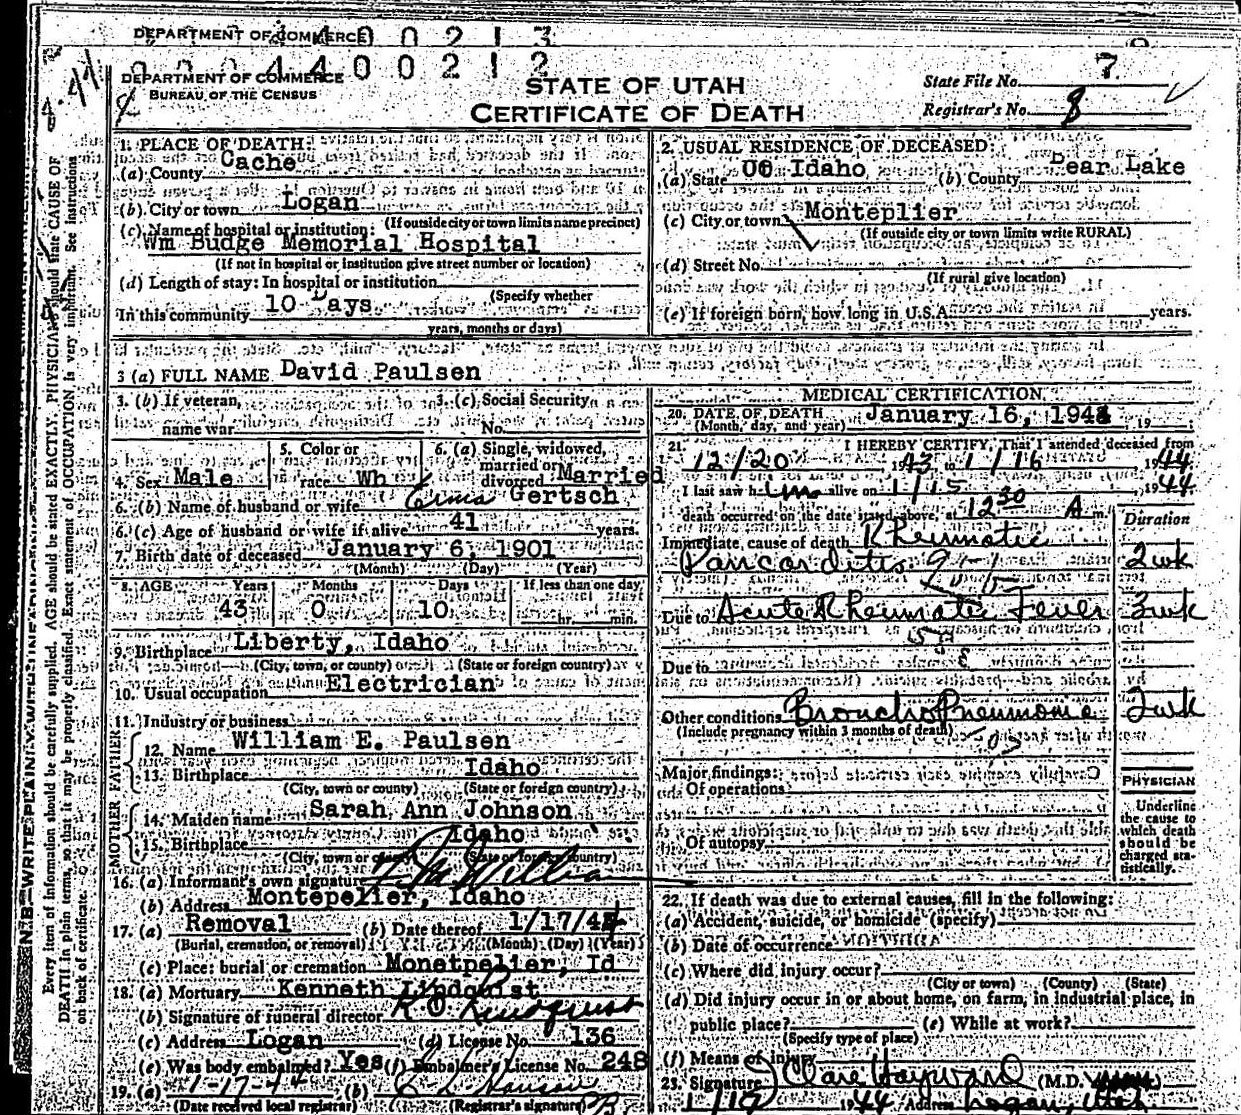 DEPARTMENT OF COMMERCE 4 4 0 0 2 1 3
4 4 0 0 2 1 2
DEPARTMENT OF COMMERCE
BUREAU OF THE CENSUS
STATE OF UTAH
CERTIFICATE OF DEATH
State File No. 7
Registrar's No. 8
1. PLACE OF DEATH:
(a) County Cache
(b) City or town Logan
(If outside city or town limits name precinct)
(c) Name of hospital or institution:
Wm Budge Memorial Hospital
(If not in hospital or institution give street number or location)
(d) Length of stay: In hospital or institution
(Specify whether
In this community 10 Days
years, months or days)
2. USUAL RESIDENCE OF DECEASED:
(a) State Idaho (b) County Bear Lake
(c) City or town Monteplier
(If outside city or town limits write RURAL)
(d) Street No.
(If rural give location)
(e) If foreign born, how long in U.S.A. years.
3 (a) FULL NAME David Paulsen
3. (b) If veteran, name war
3. (c) Social Security No.
4. Sex Male
5. Color or race Wh
6. (a) Single, widowed, married or divorced Married
6. (b) Name of husband or wife Erma Gertsch
6. (c) Age of husband or wife if alive 41 years.
7. Birth date of deceased January 6, 1901
(Month) (Day) (Year)
8. AGE Years Months Days If less than one day
43 0 10 hr. min.
9. Birthplace Liberty, Idaho
(City, town, or county) (State or foreign country)
10. Usual occupation Electrician
11. Industry or business
FATHER
12. Name William E. Paulsen
13. Birthplace Idaho
(City, town or county) (State or foreign country)
MOTHER
14. Maiden name Sarah Ann Johnson
15. Birthplace Idaho
(City, town or county) (State or foreign country)
16. (a) Informant's own signature
(b) Address Montepelier, Idaho
17. (a) Removal (b) Date thereof 1/17/44
(Burial, cremation, or removal) (Month) (Day) (Year)
(c) Place: burial or cremation Monetpelier, Id
18. (a) Mortuary Kenneth Lindquist
(b) Signature of funeral director K O Lindquist
(c) Address Logan (d) License No. 136
(e) Was body embalmed? Yes (f) Embalmer's License No. 248
19. (a) 1-17-44 (b)
(Date received local registrar) (Registrar's signature)
MEDICAL CERTIFICATION
20. DATE OF DEATH January 16, 1944 19
(Month, day, and year)
21. I HEREBY CERTIFY, That I attended deceased from
12/20 1943 to 1/16 1944
I last saw him alive on 1/15, 1944
death occurred on the date stated above, at 12 30 A m.
Duration
Immediate cause of death Rheumatic
Pancarditis 2 wk
Due to Acute Rheumatic Fever 3 wk
Due to
Other conditions BronchoPneumonia 2 wk
(Include pregnancy within 3 months of death)
Major findings:
Of operations
Of autopsy
PHYSICIAN
Underline
the cause to
which death
should be
charged sta-
tistically.
22. If death was due to external causes, fill in the following:
(a) Accident, suicide, or homicide (specify)
(b) Date of occurrence
(c) Where did injury occur?
(City or town) (County) (State)
(d) Did injury occur in or about home, on farm, in industrial place, in
public place? (e) While at work?
(Specify type of place)
(f) Means of injury
23. Signature J Clare Hayward (M.D.
1/17 1944 Address Logan, Utah
N. B.—WRITE PLAINLY WITH UNFADING
Every item of information should be carefully supplied. AGE should be stated EXACTLY. PHYSICIANS should state CAUSE OF
DEATH in plain terms, so that it may be properly classified. Exact statement of OCCUPATION is very important. See instructions
on back of certificate.